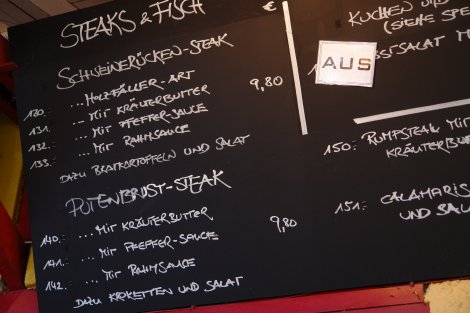 STEAKS & FISCH
€
SCHWEINERÜCKEN-STEAK
130.- ...HOLZFÄLLER-ART
131.- ...MIT KRÄUTERBUTTER 9,80
132.- ...MIT PFEFFER-SAUCE
133.- ...MIT RAHMSAUCE
DAZU BRATKARTOFFELN UND SALAT
PUTENBRUST-STEAK
140.- ...MIT KRÄUTERBUTTER
141.- ...MIT PFEFFER-SAUCE 9,80
142.- ...MIT RAHMSAUCE
DAZU KROKETTEN UND SALAT
KUCHEN UND
(SIEHE SPE
AUS
SALAT M
150.- RUMPSTEAK MIT
KRÄUTERBU
151.- CALAMARIS
UND SAL